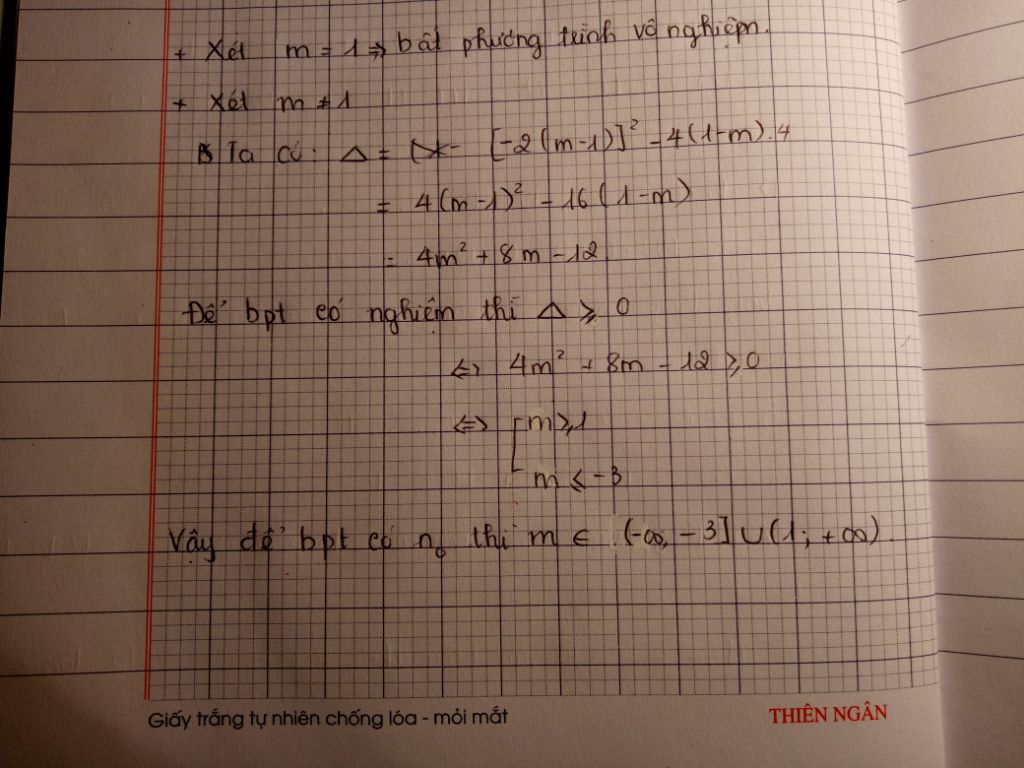 + Xét m = 1 => bất phương trình vô nghiệm.
+ Xét m ≠ 1
Ta có: Δ = [-2(m-1)]² - 4(1-m).4
= 4(m-1)² - 16(1-m)
= 4m² + 8m - 12
Để bpt có nghiệm thì Δ ≥ 0
<=> 4m² + 8m - 12 ≥ 0
<=> [ m ≥ 1
m ≤ -3
Vậy để bpt có n₀ thì m ∈ (-∞, -3] ∪ (1; +∞).
Giấy trắng tự nhiên chống lóa - mỏi mắt
THIÊN NGÂN